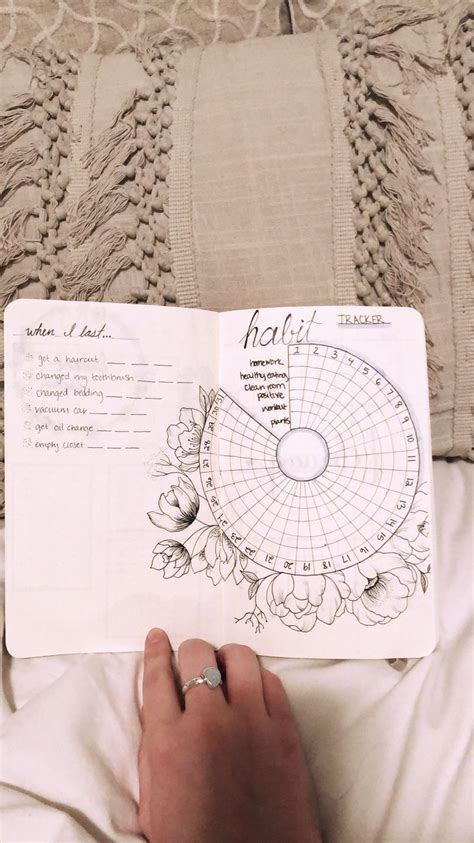 when I last...
got a haircut
changed my toothbrush
changed bedding
vacuum car
get oil change
empty closet
habit TRACKER
homework
healthy eating
clean room
positive
workout
plants
1 2 3 4 5 6 7 8 9 10 11 12 13 14 15 16 17 18 19 20 21 22 23 24 25 26 27 28 29 30 31